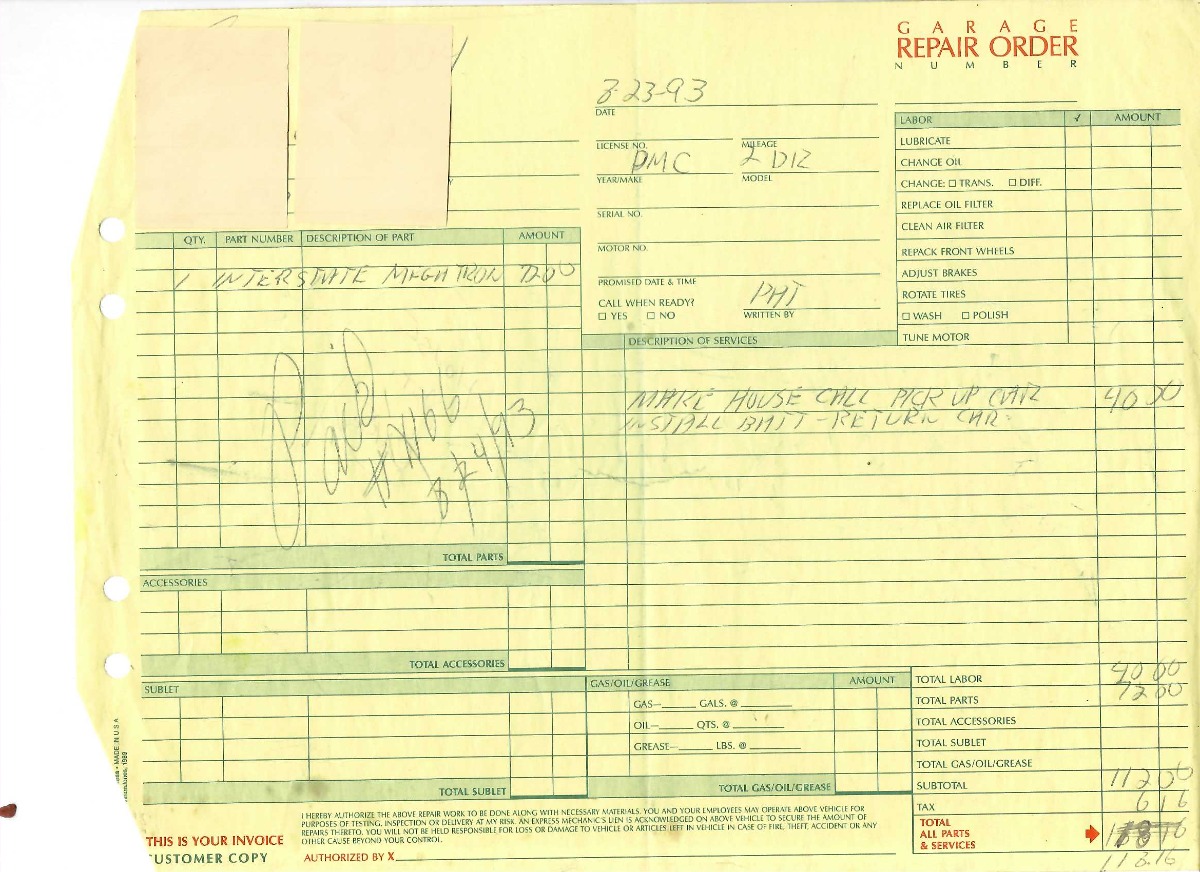 GARAGE
REPAIR ORDER
NUMBER
8-23-93
DATE
LICENSE NO. MILEAGE
DMC
YEAR/MAKE MODEL
SERIAL NO.
MOTOR NO.
PROMISED DATE & TIME
CALL WHEN READY?
☐ YES ☐ NO
PHT
WRITTEN BY
LABOR ✓ AMOUNT
LUBRICATE
CHANGE OIL
CHANGE: ☐ TRANS. ☐ DIFF.
REPLACE OIL FILTER
CLEAN AIR FILTER
REPACK FRONT WHEELS
ADJUST BRAKES
ROTATE TIRES
☐ WASH ☐ POLISH
TUNE MOTOR
QTY. PART NUMBER DESCRIPTION OF PART AMOUNT
1 INTERSTATE MEGATRON 7200
Paid
DESCRIPTION OF SERVICES
MAKE HOUSE CALL PICK UP CAR 40 00
INSTALL BATT - RETURN CAR
TOTAL PARTS
ACCESSORIES
TOTAL ACCESSORIES
SUBLET
TOTAL SUBLET
GAS/OIL/GREASE AMOUNT
GAS— GALS. @
OIL— QTS. @
GREASE— LBS. @
TOTAL GAS/OIL/GREASE
TOTAL LABOR 40 00
TOTAL PARTS 72 00
TOTAL ACCESSORIES
TOTAL SUBLET
TOTAL GAS/OIL/GREASE
SUBTOTAL 112 00
TAX 6 16
TOTAL
ALL PARTS
& SERVICES
118.16
MADE IN U S A
THIS IS YOUR INVOICE
CUSTOMER COPY
I HEREBY AUTHORIZE THE ABOVE REPAIR WORK TO BE DONE ALONG WITH NECESSARY MATERIALS. YOU AND YOUR EMPLOYEES MAY OPERATE ABOVE VEHICLE FOR
PURPOSES OF TESTING, INSPECTION OR DELIVERY AT MY RISK. AN EXPRESS MECHANICS LIEN IS ACKNOWLEDGED ON ABOVE VEHICLE TO SECURE THE AMOUNT OF
REPAIRS THERETO. YOU WILL NOT BE HELD RESPONSIBLE FOR LOSS OR DAMAGE TO VEHICLE OR ARTICLES LEFT IN VEHICLE IN CASE OF FIRE, THEFT, ACCIDENT OR ANY
OTHER CAUSE BEYOND YOUR CONTROL.
AUTHORIZED BY X